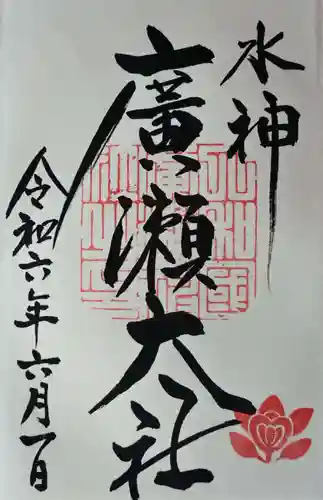 水神
廣瀬大社
令和六年六月一日